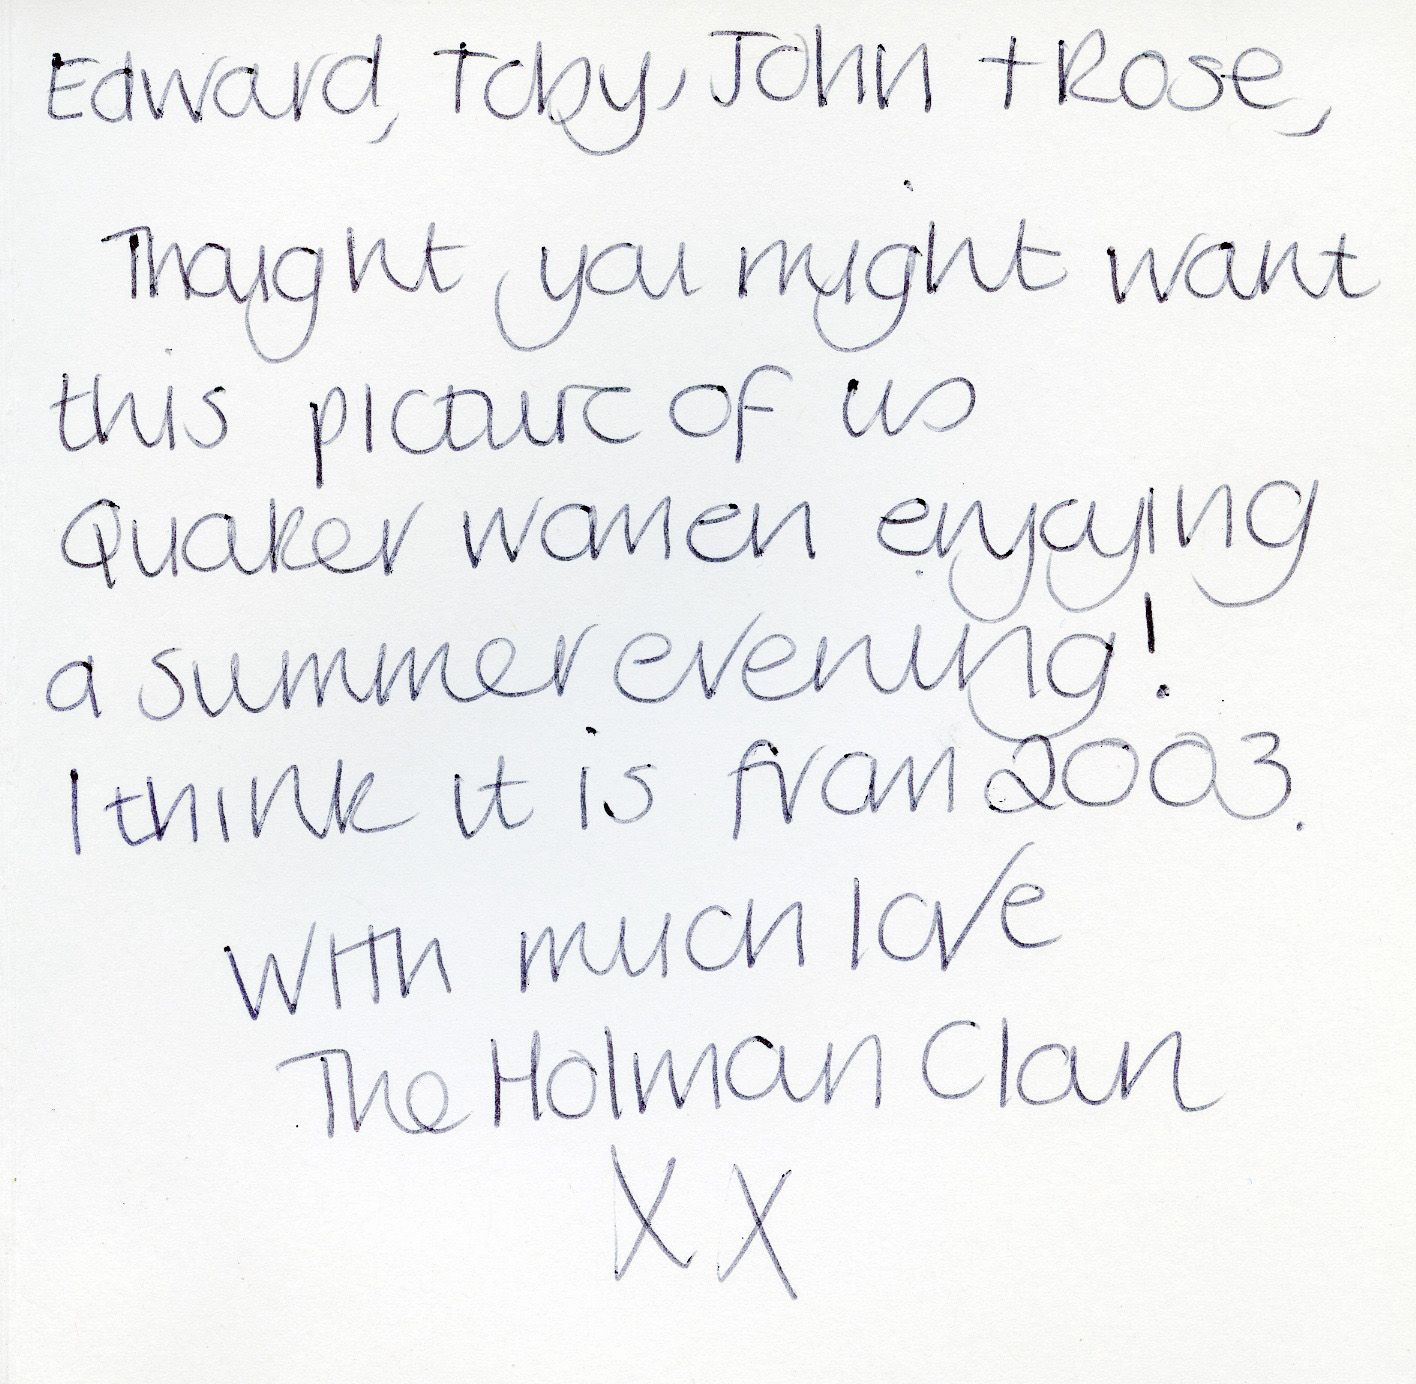 Edward, Toby, John + Rose,
Thought you might want
this picture of us
Quaker women enjoying
a summer evening!
I think it is from 2003.
With much love
The Holman Clan
XX